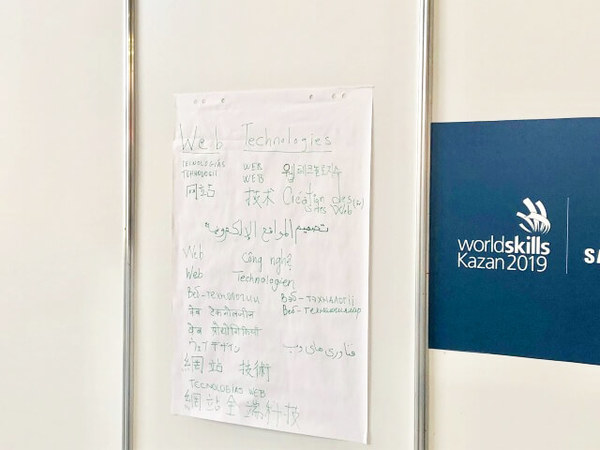 Web Technologies
TECNOLOGÍAS WEB
TEHNOLOGII WEB
网站 技术 Création des(k) Sites Web
تصميم المواقع الإلكترونية
Web Công nghệ
Web Technologien
Веб-технологии Вэб-тэхналогіі
Веб-технологиялар
वेब टेक्नोलॉजीज
वेब प्रौद्योगिकी
فناوری های وب
網站 技術
TECNOLOGÍAS WEB
網站全端
worldskills
Kazan 2019